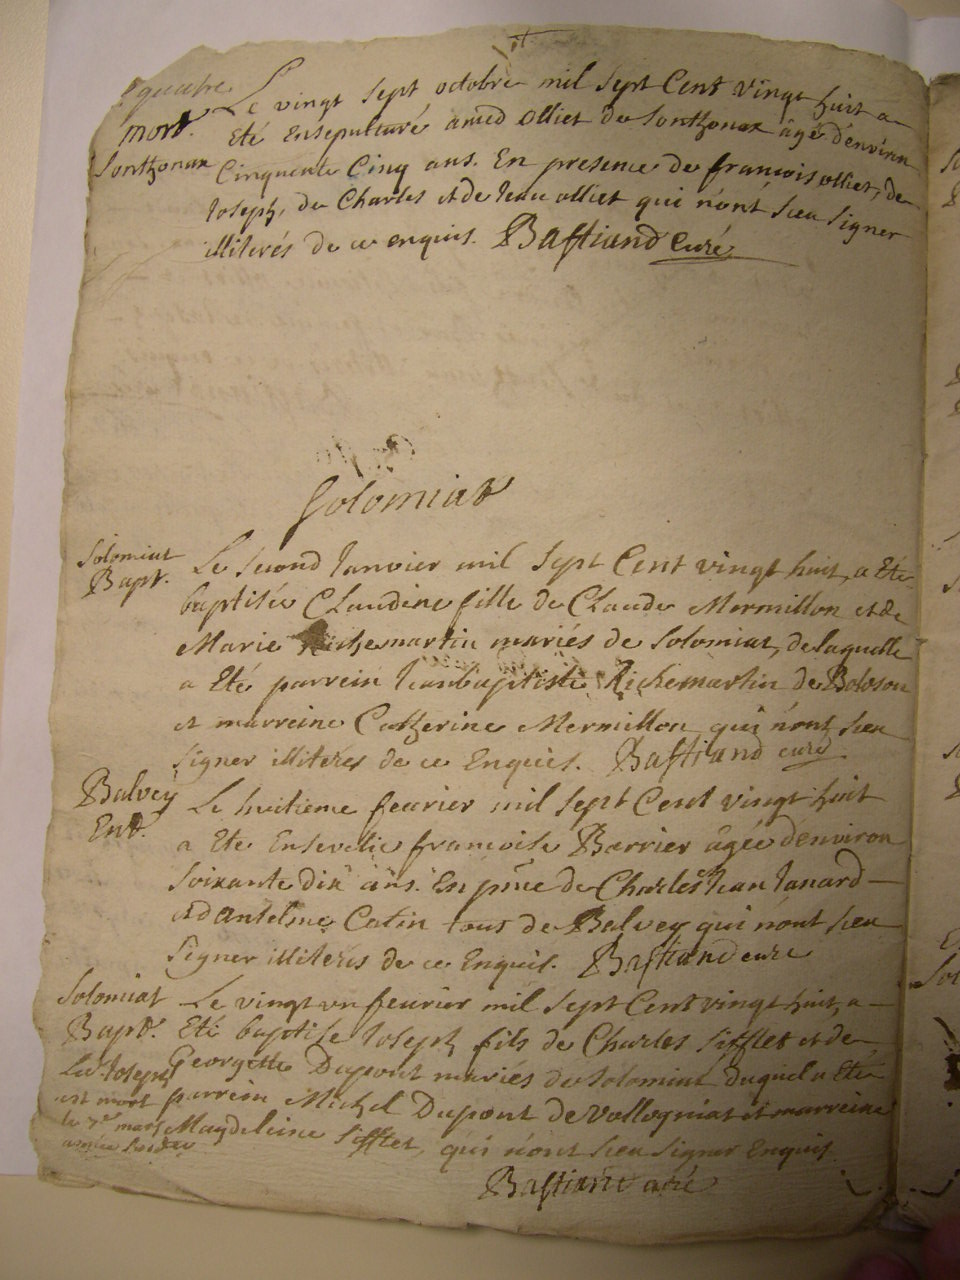 quatre
mort.
Sonthonax
Le vingt sept octobre mil sept Cent vingt huit a
Eté Ensepulturé amed olliet de Sonthonax âgé d'environ
Cinquente Cinq ans. En presence de francois olliet, de
Joseph, de Charles et de Jean olliet qui n'ont sceu signer
illiterés de ce enquis. Bastiand Curé
Solomiat
Solomiat
Bapt.
Le second Janvier mil sept Cent vingt huit, a Eté
baptisée Claudine fille de Claude Mermillon et de
Marie Richemartin mariés de Solomiat, de laquelle
a Eté parrein Jeanbaptiste Richemartin de Boloson
et marreine Catherine Mermillon qui n'ont sceu
signer illiterés de ce Enquis. Bastiand curé
Balvey
Ent.
Le huitieme feurier mil sept Cent vingt huit
a Eté Ensevelie francoise Barrier âgée d'environ
soixante dix ans. En pnce de Charles et Jean Janard
et d'antelme Catin tous de Balvey qui n'ont sceu
signer illiterés de ce Enquis. Bastiand curé
Solomiat
Bapt.
Led. Joseph
est mort
le 7e mars
Le vingt un feurier mil sept Cent vingt huit, a
Eté baptise Joseph fils de Charles Sifflet et de
Georgette Dupont mariés de Solomiat duquel a Eté
parrein Michel Dupont de Vollogniat et marreine
Magdeleine Sifflet, qui n'ont sceu signer Enquis
Bastiand curé